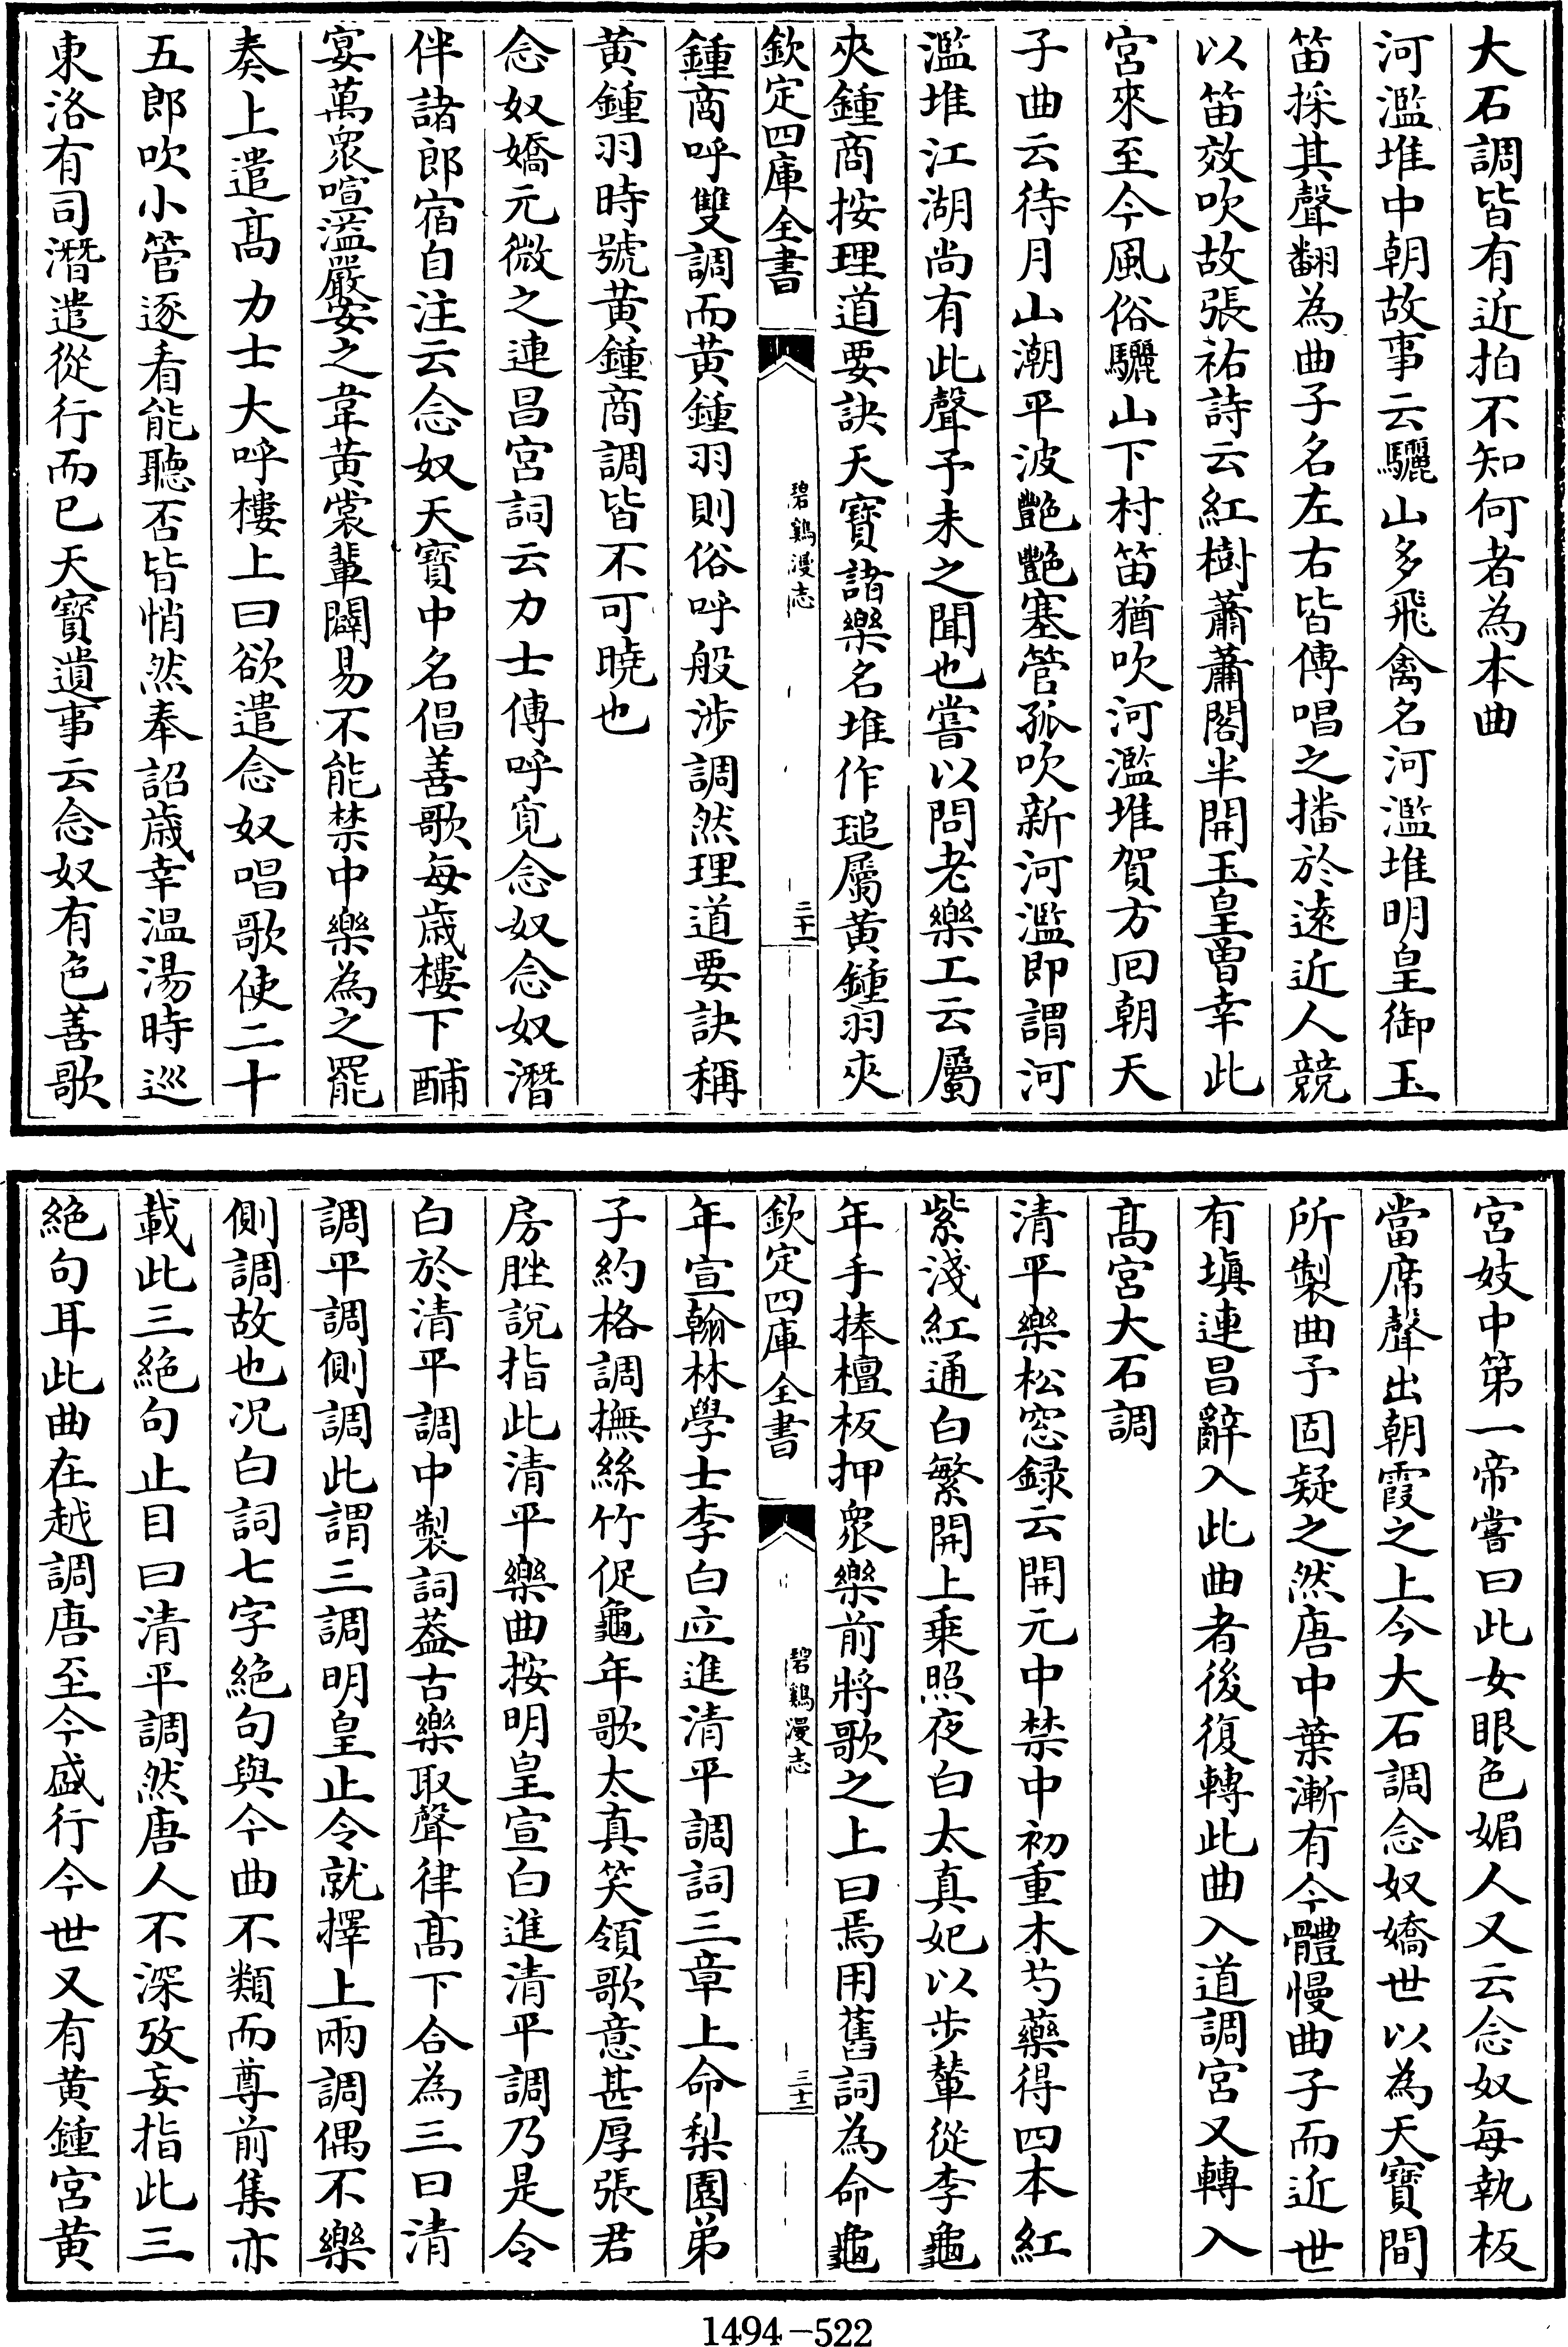 大石調皆有近拍不知何者為本曲
河濫堆中朝故事云驪山多飛禽名河濫堆明皇御玉
笛採其聲翻為曲子名左右皆傳唱之播於逺近人競
以笛效吹故張祐詩云紅樹蕭蕭閣半開玉皇曽幸此
宮來至今風俗驪山下村笛猶吹河濫堆賀方囘朝天
子曲云待月山潮平波艷艷塞管孤吹新河濫即謂河
濫堆江湖尚有此聲予未之聞也嘗以問老樂工云屬
夾鍾商按理道要訣天寶諸樂名堆作塠屬黄鍾羽夾
欽定四庫全書
碧鷄漫志
三十一
鍾商呼雙調而黄鍾羽則俗呼般涉調然理道要訣稱
黄鍾羽時號黄鍾商調皆不可曉也
念奴嬌元微之連昌宮詞云力士傳呼覓念奴念奴潛
伴諸郎宿自注云念奴天寶中名倡善歌每歳樓下酺
宴萬衆喧溢嚴安之韋黄裳輩闢易不能禁中樂為之罷
奏上遣髙力士大呼樓上曰欲遣念奴唱歌使二十
五郎吹小管逐看能聽否皆悄然奉詔歳幸温湯時巡
東洛有司潛遣從行而已天寶遺事云念奴有色善歌
宮妓中第一帝嘗曰此女眼色媚人又云念奴每執板
當席聲出朝霞之上今大石調念奴嬌世以為天寶間
所製曲予固疑之然唐中葉漸有今體慢曲子而近世
有塡連昌辭入此曲者後復轉此曲入道調宮又轉入
髙宮大石調
清平樂松窓録云開元中禁中初重木芍藥得四本紅
紫淺紅通白繁開上乗照夜白太真妃以步輦從李龜
年手捧檀板押衆樂前將歌之上曰焉用舊詞為命龜
欽定四庫全書
碧鷄漫志
三十二
年宣翰林學士李白立進清平調詞三章上命梨園弟
子約格調撫絲竹促龜年歌太真笑領歌意甚厚張君
房脞說指此清平樂曲按明皇宣白進清平調乃是令
白於清平調中製詞葢古樂取聲律髙下合為三曰清
調平調側調此謂三調明皇止令就擇上兩調偶不樂
側調故也况白詞七字絶句與今曲不類而尊前集亦
載此三絶句止目曰清平調然唐人不深攷妄指此三
絶句耳此曲在越調唐至今盛行今世又有黄鍾宮黄
1494-522